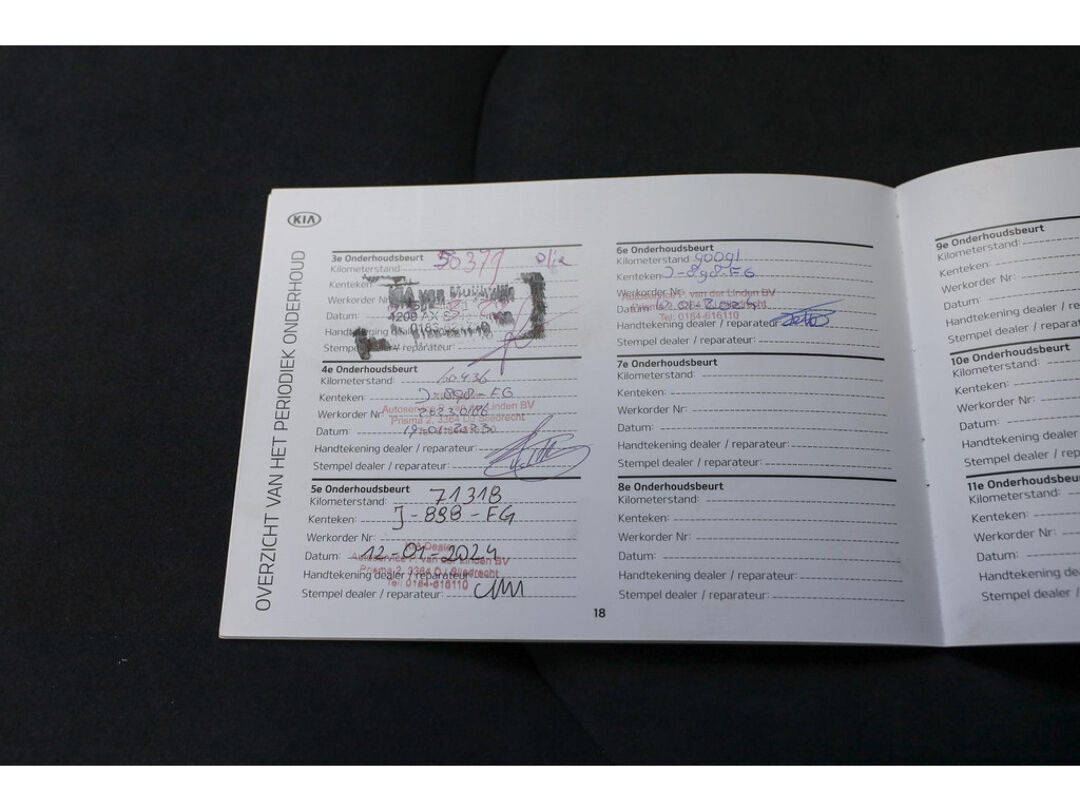 KIA
OVERZICHT VAN HET PERIODIEK ONDERHOUD
3e Onderhoudsbeurt
Kilometerstand 50379 olie
Kenteken:
Werkorder Nr
Datum: 4208 AX
Handtekening dealer
Stempel dealer / reparateur:
4e Onderhoudsbeurt
Kilometerstand: 60436
Kenteken: J-898-FG
Werkorder Nr:
Autoservice P. van der Linden BV
Prisma 2, 3364 DJ Sliedrecht
Datum:
Handtekening dealer / reparateur:
Stempel dealer / reparateur:
5e Onderhoudsbeurt
Kilometerstand: 71318
Kenteken: J-898-FG
Werkorder Nr:
Kia Dealer
Datum: 12-01-2024
Autoservice P. van der Linden BV
Prisma 2, 3364 DJ Sliedrecht
Handtekening dealer / reparateur:
Tel: 0184-616110
Stempel dealer / reparateur:
18
6e Onderhoudsbeurt
Kilometerstand 90091
Kenteken: J-898-FG
Werkorder Nr:
Autoservice P. van der Linden BV
Datum:
Tel: 0184-616110
Handtekening dealer / reparateur
Stempel dealer / reparateur:
7e Onderhoudsbeurt
Kilometerstand:
Kenteken:
Werkorder Nr:
Datum:
Handtekening dealer / reparateur:
Stempel dealer / reparateur:
8e Onderhoudsbeurt
Kilometerstand:
Kenteken:
Werkorder Nr:
Datum:
Handtekening dealer / reparateur:
Stempel dealer / reparateur:
9e Onderhoudsbeurt
Kilometerstand:
Kenteken:
Werkorder Nr:
Datum:
Handtekening dealer / r
Stempel dealer / rep
10e Onderhoudsbeurt
Kilometerstand:
Kenteken:
Werkorder Nr:
Datum:
Handtekening dealer
Stempel dealer / rep
11e Onderhoudsbeu
Kilometerstand:
Kenteken:
Werkorder Nr:
Datum:
Handtekening de
Stempel dealer /